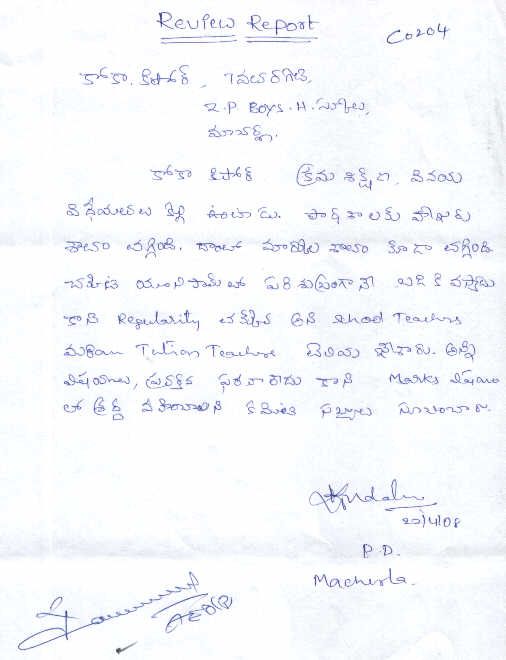 Review Report
C0204
కోకా. కిషోర్, 7వతరగతి,
Z.P Boys. H. స్కూలు,
మాచర్ల.
కోకా కిషోర్ క్రమ శిక్షణ, వినయ
విధేయతలు కల్గి ఉంటాడు. పాఠశాలకు హాజరు
శాతం తగ్గింది. దాంతో మార్కుల శాతం కూడా తగ్గింది
యూనిఫామ్ లో పరిశుభ్రంగానే బడికి వస్తాడు
కాని Regularity తక్కువ అని School Teachers
మరియు Tution Teachers తెలియ జేశారు. అన్ని
విషయాలు, ప్రవర్తన ఫరవాలేదు కాని Marks విషయం
లో శ్రద్ధ వహించాలని కమిటి సభ్యులు సూచించారు.
20/4/08
P.D.
Macherla.